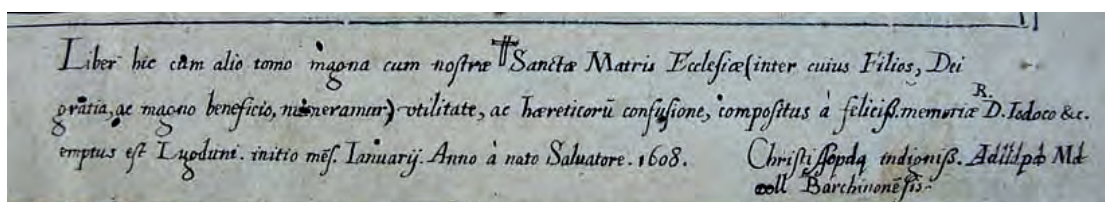 Liber hic cum alio tomo magna cum nostræ Sanctæ Matris Ecclesiæ (inter cuius Filios, Dei
gratia, ac magno beneficio, numeramur) vtilitate, ac hæreticorū confusione, compositus à feliciss. memoriæ R. D. Iodoco &c.
emptus est Lugduni. initio mēs. Ianuarij. Anno à nato Saluatore. 1608. Christi indigniss.
coll Barchinonēsis.